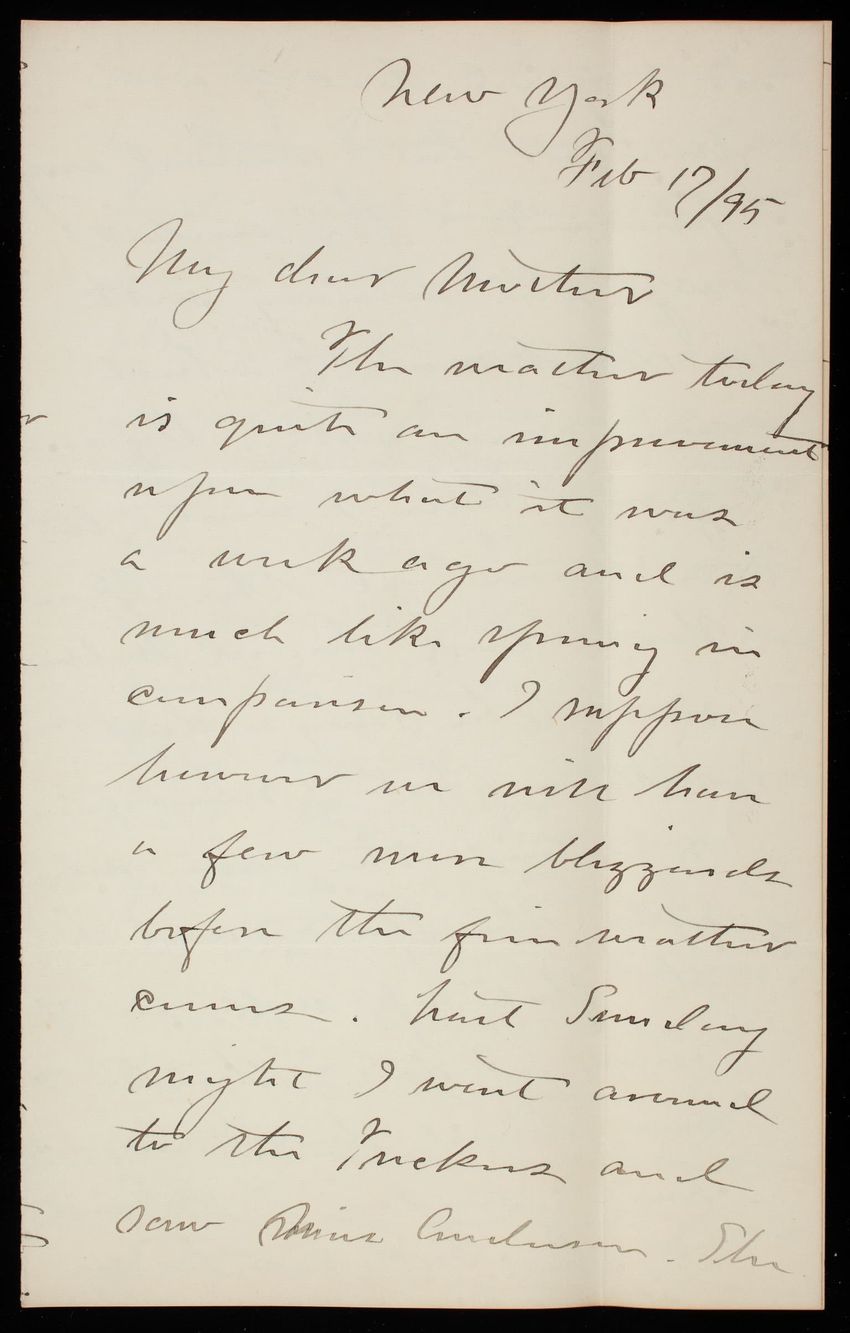 New York
Feb 17/95
My dear Mother
The weather today
is quite an improvement
upon what it was
a week ago and is
much like spring in
comparison. I suppose
however we will have
a few more blizzards
before the fine weather
comes. Last Sunday
night I went around
to the Tuckers and
saw Miss Anderson. She